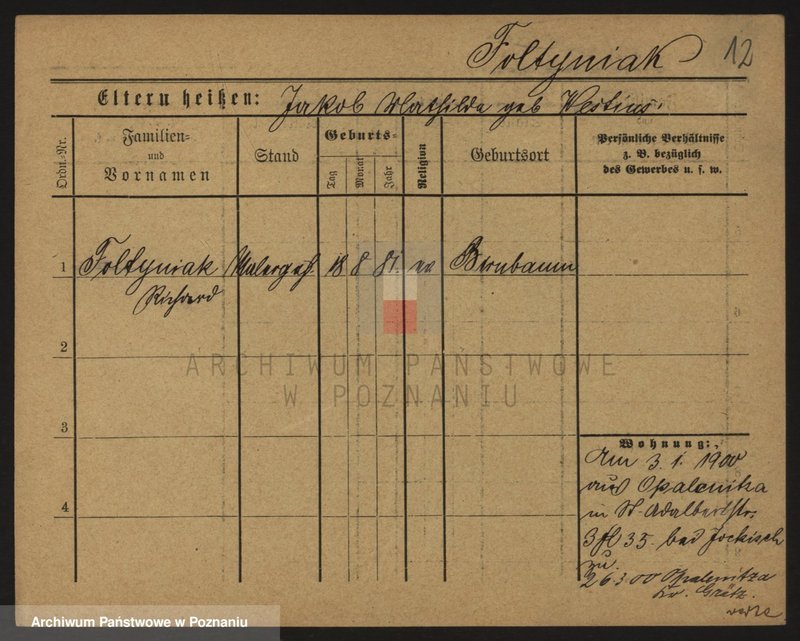 Foltyniak 12
Eltern heißen: Jakob Mathilda geb
Ordn.-Nr.
Familien-
und
Vornamen
Stand
Geburts-
Tag
Monat
Jahr
Religion
Geburtsort
Persönliche Verhältnisse
z. B. bezüglich
des Gewerbes u. s. w.
1 Foltyniak Malergeh. 18 8 81. ev Birnbaum
Richard
2
ARCHIWUM PAŃSTWOWE
W POZNANIU
3
4
Wohnung:
Am 3. 1. 1900
aus Opalenitza
in St. Adalbertstr.
3 35. bei Jockisch
zu.
26 3 00 Opalenitza
Kr. Grätz.
Archiwum Państwowe w Poznaniu